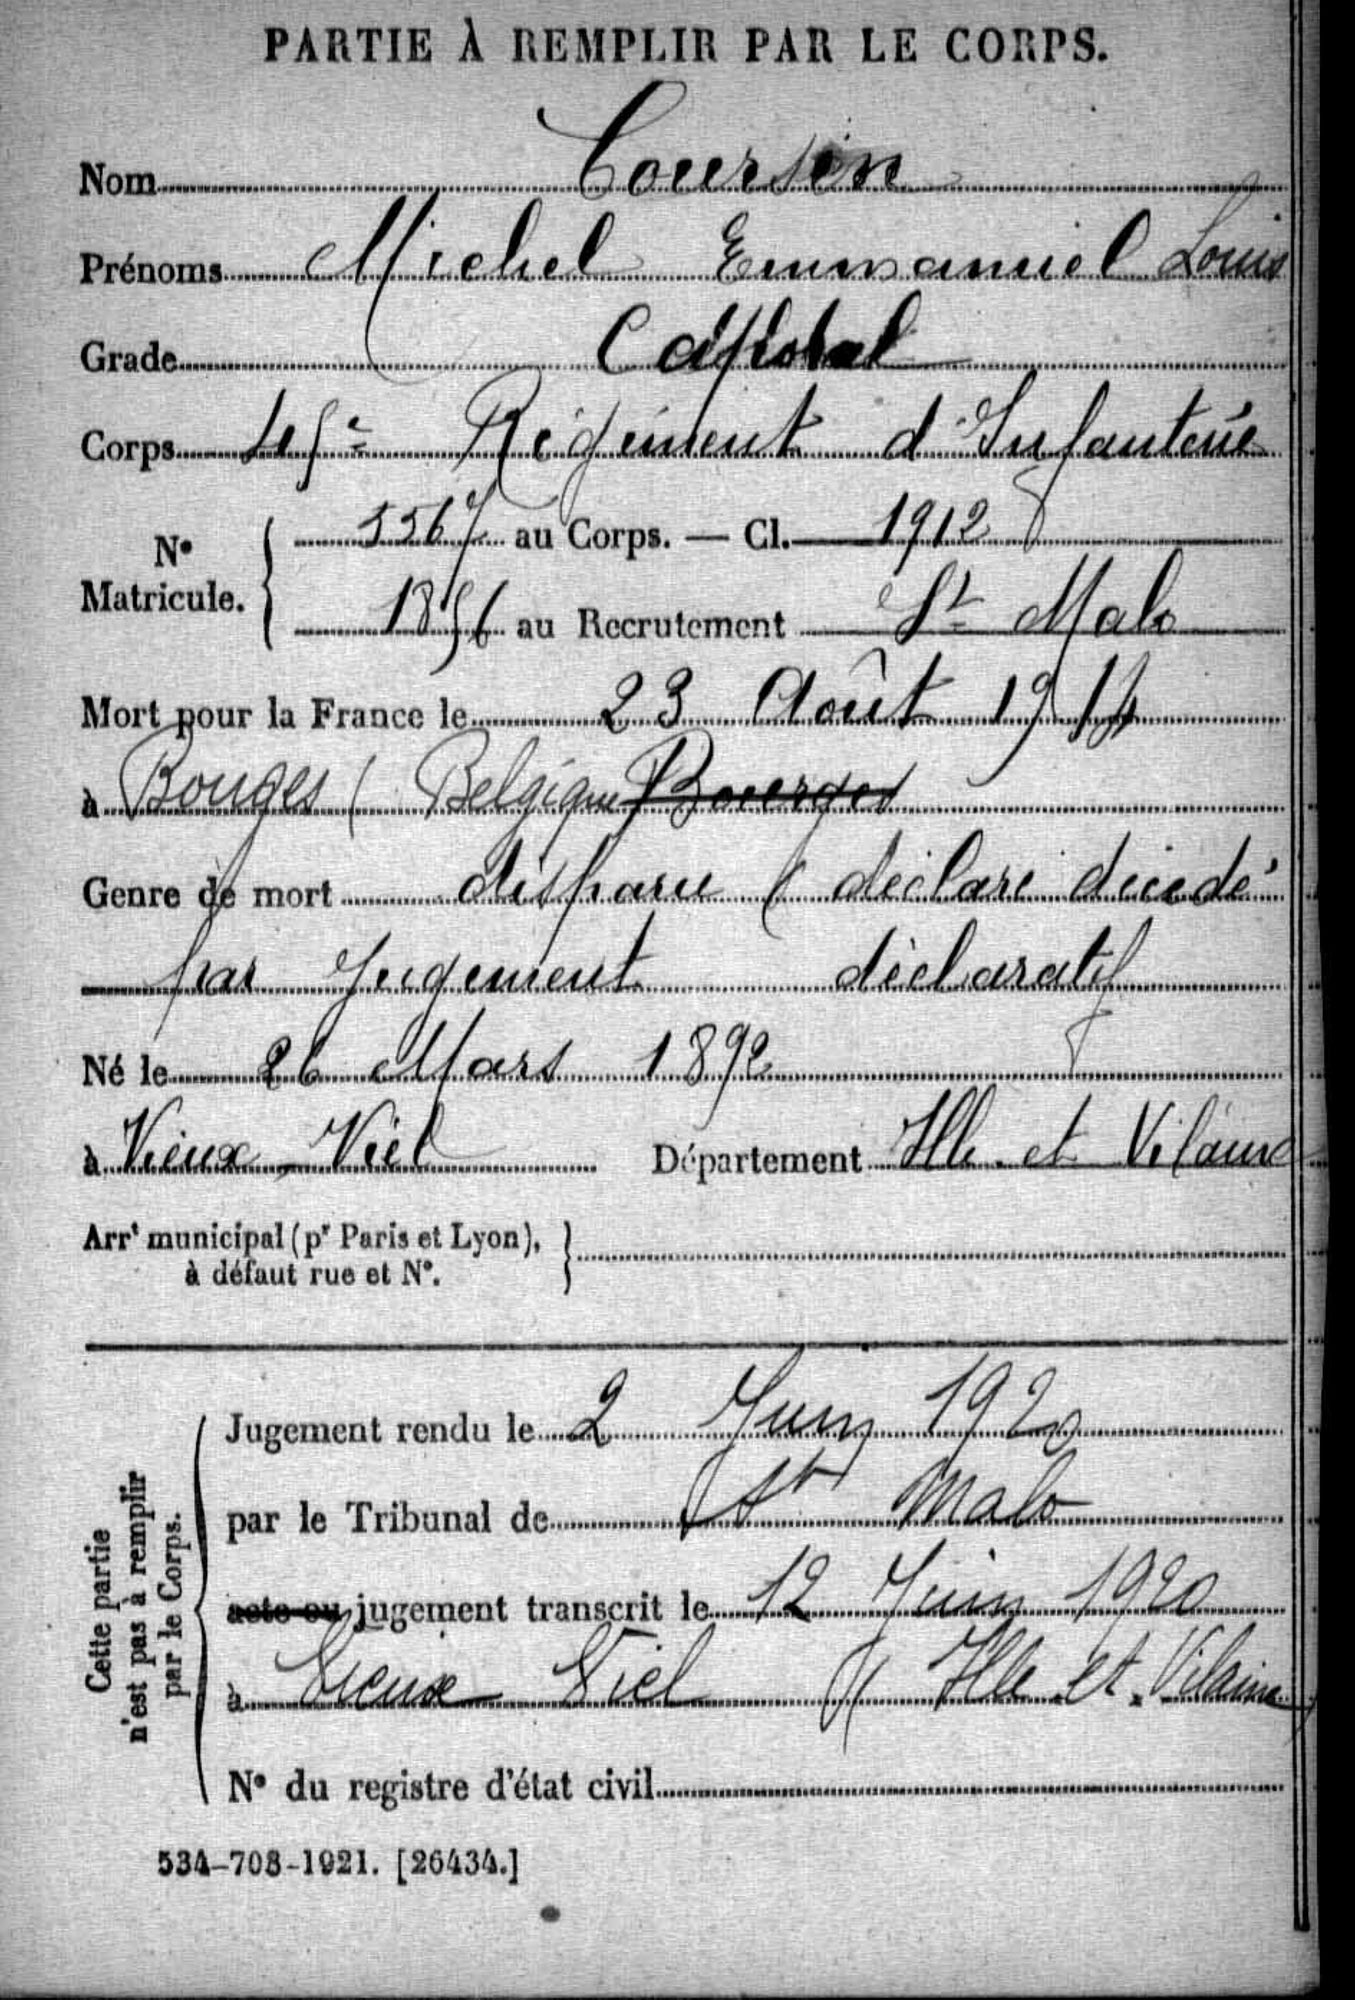 PARTIE À REMPLIR PAR LE CORPS.
Nom Coursin
Prénoms Michel Emmanuel Louis
Grade Caporal
Corps 45e Régiment d'Infanterie
No Matricule. 5567 au Corps. — Cl. 1912
1856 au Recrutement St Malo
Mort pour la France le 23 Août 1914
à Bouges (Belgique Bourges
Genre de mort disparu (déclaré décédé
par Jugement déclaratif
Né le 26 Mars 1892
à Vieux-Viel Département Ille et Vilaine
Arrt municipal (pr Paris et Lyon),
à défaut rue et No.
Cette partie
n'est pas à remplir
par le Corps.
Jugement rendu le 2 Juin 1920
par le Tribunal de St Malo
acte ou jugement transcrit le 12 Juin 1920
à Vieux Viel (Ille et Vilaine)
No du registre d'état civil
534-708-1921. [26434.]